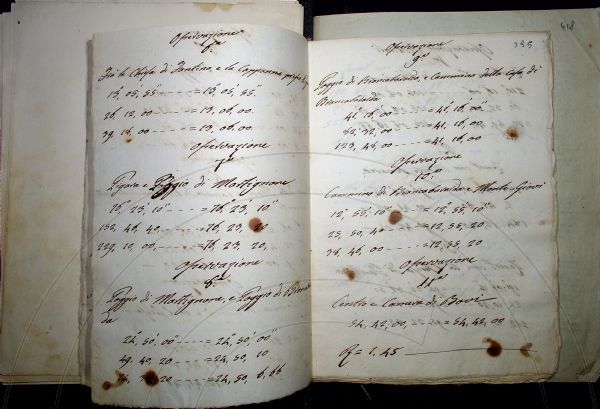 Osservazione
6.a
Frà la Chiesa di Fontino, e la Capannna
13°, 05, 55" = 13, 05, 55"
26 12, 00 = 13, 06, 00
39 18, 00 = 13, 06, 00.
Osservazione
7.a
Pigara e Poggio di Martignone
76°, 23, 10" = 76°, 23, 10"
152, 46, 40, = 76, 23, 20
229, 10, 00, = 76, 23, 20,
Osservazione
8.a
Poggio di Martignone, e Poggio di
da
24°, 50, 00" = 24°, 50, 00"
49, 40, 20 = 24, 50, 10
20 = 24, 50, 6, 66
135
418
Osservazione
9.a
Poggio di Biancabalda, e Cammino della Casa di
Biancabalda
41°, 16, 00" = 41°, 16, 00"
82, 32, 00 = 41, 16, 00
123, 48, 00 = 41, 16, 00
Osservazione
10.a
Cammino di Biancabalda e Monte Giovi
12°, 55, 10" = 12°, 55, 10"
25, 50, 40 = 12, 55, 20
38, 46, 00 = 12, 55, 20
Osservazione
11.a
Centro e Camera di Bovi
54, 42, 00, = 54, 42, 00
R = 1,45